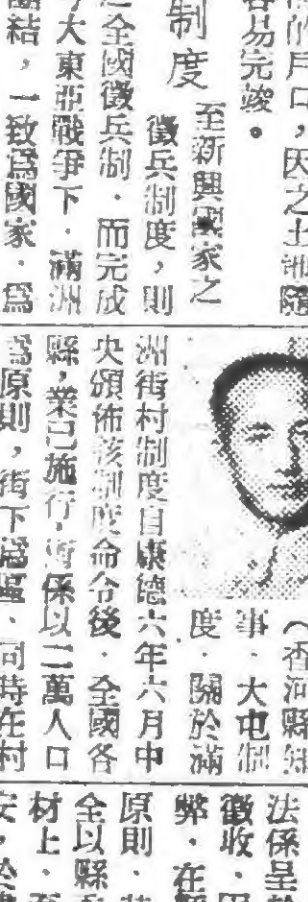 的戶口，因之土地隨
容易完竣。
制度
至新興國家之
徵兵制度，則
全國徵兵制．而完成
大東亞戰爭下．滿洲
團結，一致爲國家．爲
（香河縣知
事．大屯制
度．關於滿
洲街村制度自康德六年六月中
央頒佈該制度命令後．全國各
縣，業已施行，暫係以二萬人口
爲原則，街下爲區．同時在村
法係呈
徵收．因
弊．在
原則．
全以縣
村上．至
安，於